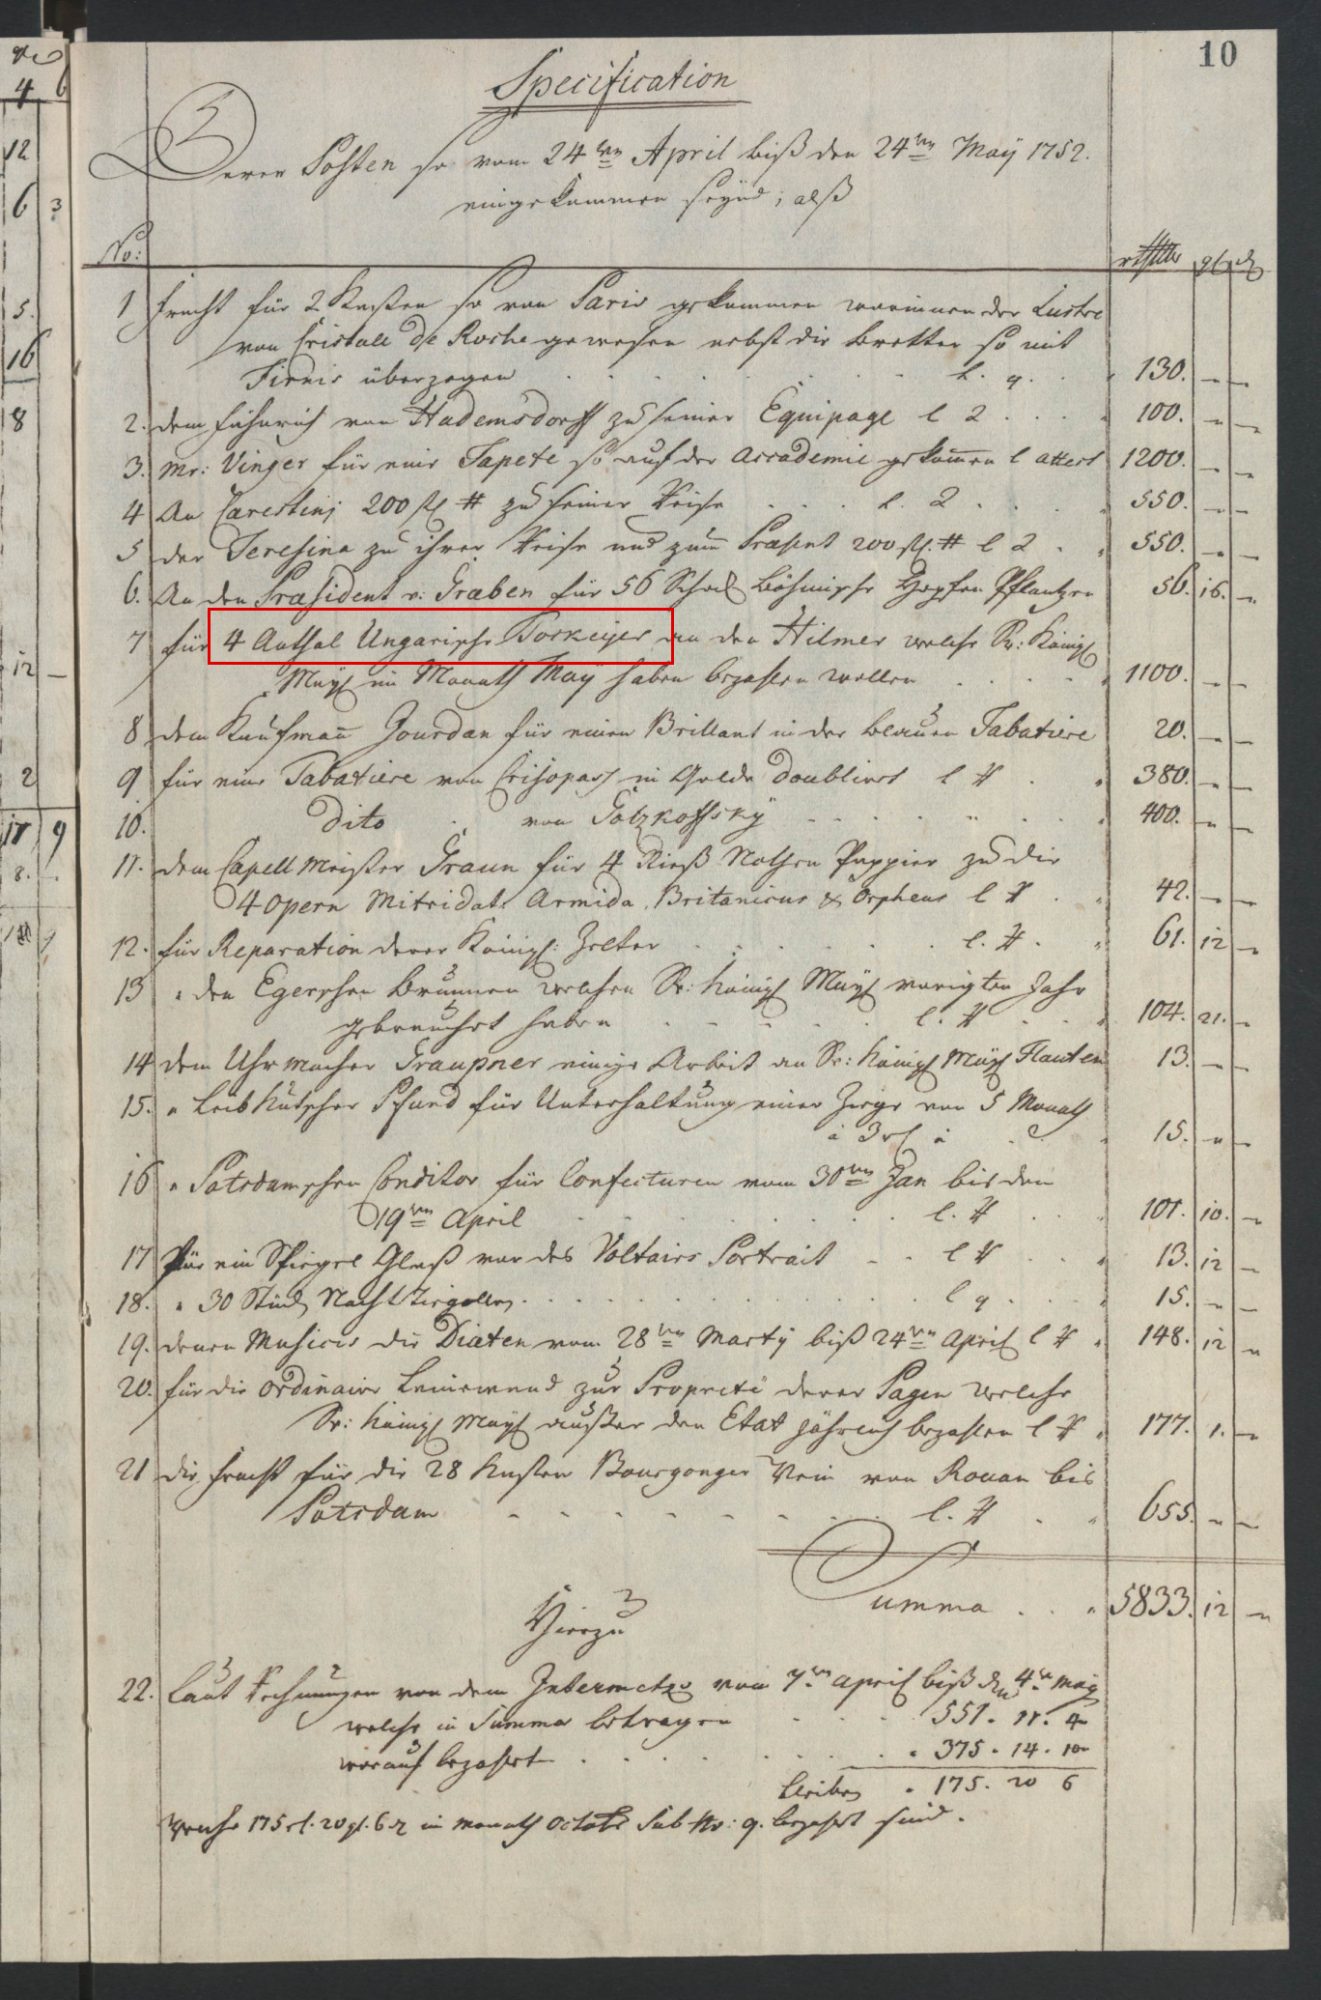 10
Specification
Derer Posten so vom 24ten April biß den 24ten Maÿ 1752.
eingekommen seynd; alß
No: rthlr gl ₰
1 Fracht für 2 Kasten so von Paris gekommen worinnen der Lustre
von Cristall de Roche gewesen nebst die Bretter so mit
Firnis überzogen 130. – –
2. dem Fähnrich von Hademsdorff zu seiner Equipage l 2 100. – –
3. Mr: Vinger für eine Tapete so auf der Accademie gekommen l attest 1200. – –
4 An Carestinj 200 st # zu seiner Reise l. 2 550. – –
5 der Teresina zu ihrer Reise und zum Præsent 200 st. # l 2 550. – –
6. An den Præsident v. Græben für 56 Schock Böhmische Hopfen Pflantzen 56. 16. –
7 für 4 Anthal Ungarische Torkeyer an den Hilmer welche Sr: Königl
Mayl im Monath Maÿ haben bezahlen wollen 1100. – –
8 dem Kaufmann Jourdan für einen Brillant in der blauen Tabatiere 20. – –
9 für eine Tabatiere von Crisopas in Golde doubliert l # 380. – –
10. dito von Gotzkoffskÿ 400. – –
11. dem Capell Meister Graun für 4 Rieß Nothen Pappier zu die
4 Opern Mitridate Armida, Britanicus & Orpheus l # 42. – –
12. für Reparation derer Königl: Zelter l. # 61. 12 –
13 " den Egerschen Brunnen welchen Sr: Königl Mayl vorigten Jahr
gebraucht haben l. # 104. 21. –
14 dem Uhrmacher Graupner einige Arbeit an Sr: Königl Mayl Flauten 13. – –
15. " Leib Kutscher Pfund für Unterhaltung einer Ziege von 5 Monath
à 3 rl 15. – –
16 " Potsdamschen Conditor für Confecturen vom 30ten Jan bis den
19ten April l. # 101. 10. –
17 für ein Spiegel Glaß vor des Voltairs Portrait l # 13. 12 –
18. " 30 Stück Nachtigallen l 9 15. – –
19. denen Musicis die Diæten vom 28ten Martÿ biß 24ten April l # 148. 12 –
20. für die ordinaire Leinewand zur Propreté derer Pagen welche
Sr: Königl Mayl außer den Etat jährlich bezahlen l # 177. 1. –
21 die Fracht für die 28 Kasten Bourgonger Wein von Rouan bis
Potsdam l. # 655. – –
Summa 5833. 12 –
Hierzu
22. Laut Rechnungen von dem Intermetzo vom 7ten April biß den 4ten Maÿ
welche in Summa betragen 551. 11. 4
worauf bezahlt 375. 14. 10
bleiben 175. 20 6
Welche 175 rl. 20 gl. 6 ₰ in Monath Octobr Sub No: 9. bezahlt sind.